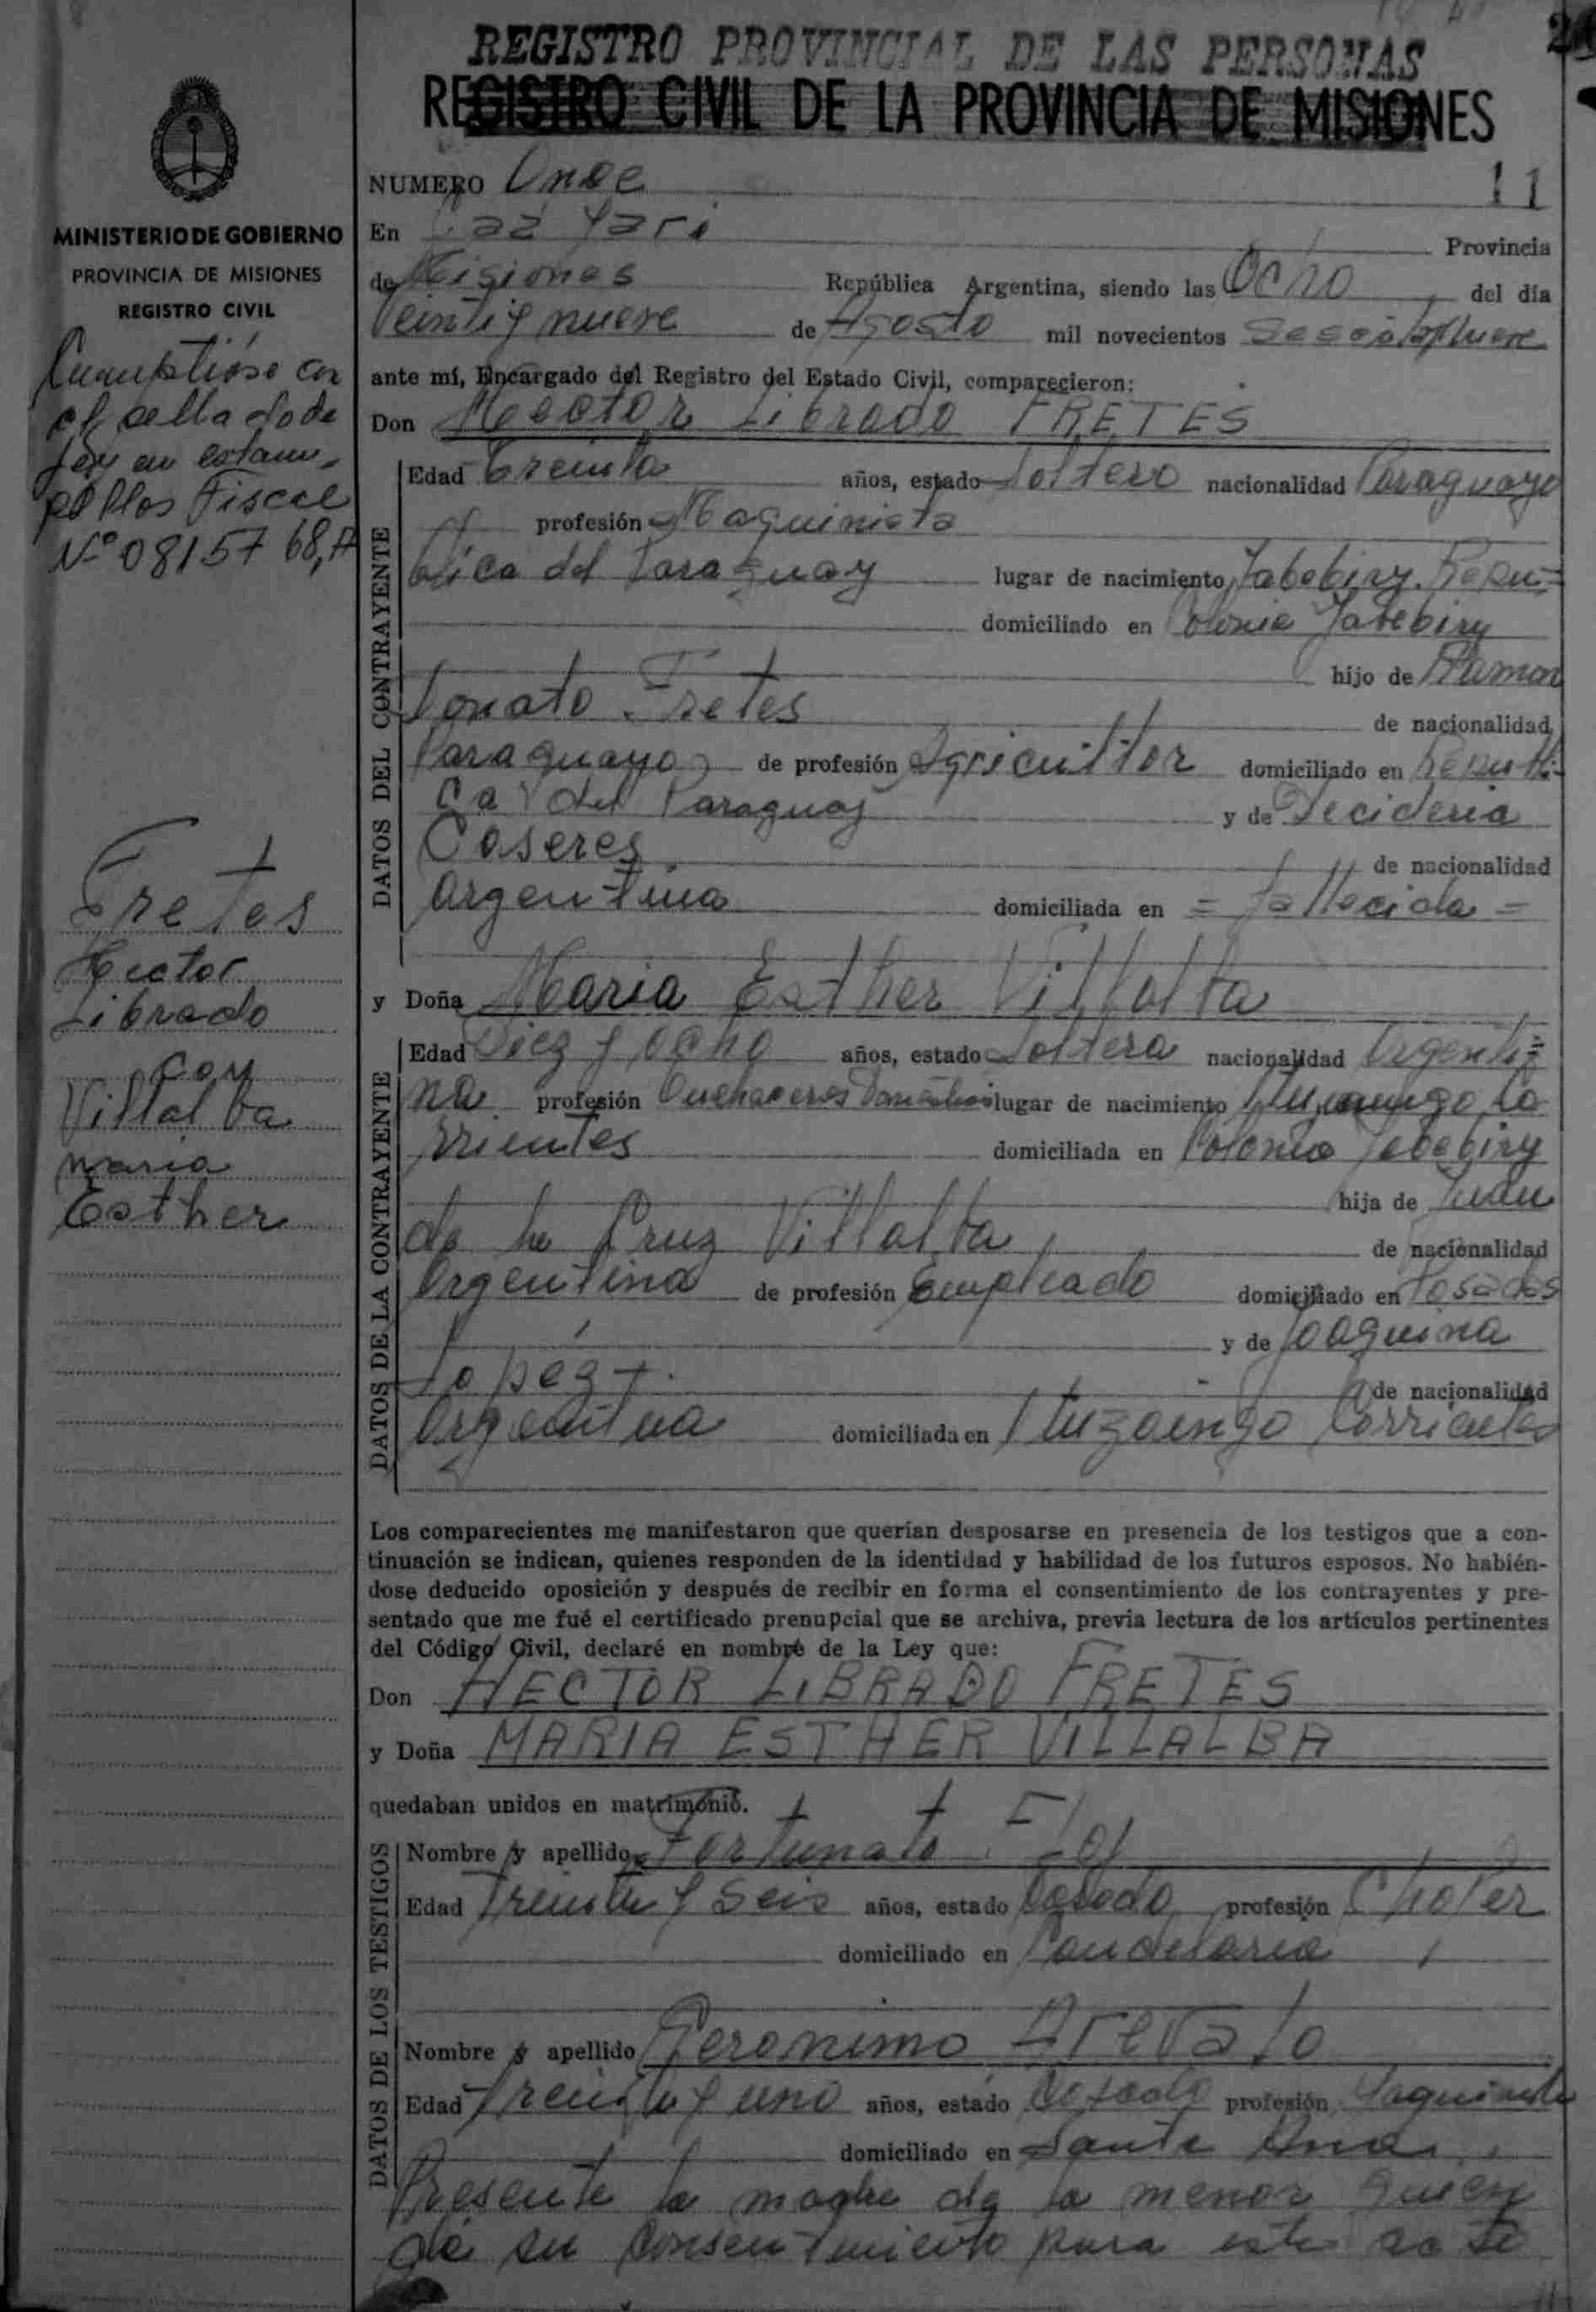 REGISTRO PROVINCIAL DE LAS PERSONAS
REGISTRO CIVIL DE LA PROVINCIA DE MISIONES
MINISTERIO DE GOBIERNO
PROVINCIA DE MISIONES
REGISTRO CIVIL
Cumplióse con
el sellado de
Ley en estam-
pillas Fiscal
Nº 0815768,A
Fretes
Hector
Librado
con
Villalba
maria
Esther
NUMERO Onse 11
En Caá Yarí Provincia
de Misiones República Argentina, siendo las Ocho del día
Veinti y nueve de Agosto mil novecientos
ante mí, Encargado del Registro del Estado Civil, comparecieron:
Don Hector Librado FRETES
DATOS DEL CONTRAYENTE
Edad Treinta años, estado Soltero nacionalidad Paraguayo
profesión Maquinista
blica del Paraguay lugar de nacimiento Yabebiry. Repu=
domiciliado en Colonia Yabebiry
hijo de Ramon
Donato Fretes de nacionalidad
Paraguayo de profesión Agricultor domiciliado en Republi-
ca del Paraguay y de Decideria
Caseres de nacionalidad
Argentina domiciliada en = fallecida =
y Doña Maria Esther Villalba
DATOS DE LA CONTRAYENTE
Edad Diez y ocho años, estado Soltera nacionalidad Argenti=
na profesión Quehaceres Domésticos lugar de nacimiento Ituzaingo Co
rrientes domiciliada en Colonia Yabebiry
hija de Juan
de la Cruz Villalba de nacionalidad
Argentina de profesión Empleado domiciliado en Posadas
y de Joaquina
Lopez de nacionalidad
Argentina domiciliada en Ituzaingo Corrientes
Los comparecientes me manifestaron que querían desposarse en presencia de los testigos que a con-
tinuación se indican, quienes responden de la identidad y habilidad de los futuros esposos. No habién-
dose deducido oposición y después de recibir en forma el consentimiento de los contrayentes y pre-
sentado que me fué el certificado prenupcial que se archiva, previa lectura de los artículos pertinentes
del Código Civil, declaré en nombre de la Ley que:
Don HECTOR LIBRADO FRETES
y Doña MARIA ESTHER VILLALBA
quedaban unidos en matrimonio.
DATOS DE LOS TESTIGOS
Nombre y apellido Fortunato
Edad Treinta y Seis años, estado Casado profesión Chofer
domiciliado en Candelaria
Nombre y apellido Geronimo Arevalo
Edad Treinta y uno años, estado Casado profesión Maquinista
domiciliado en Santa Ana
Presente la madre de la menor quien
dá su consentimiento para este acto